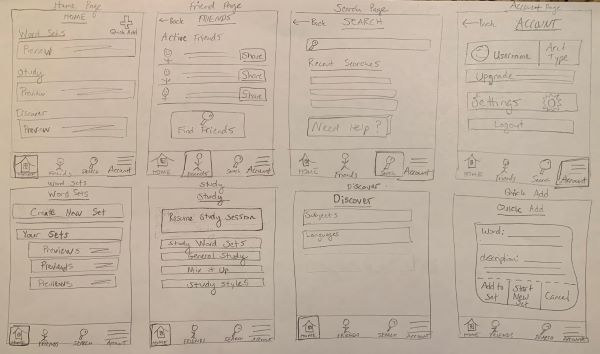 Home Page
HOME
Word Sets
Quick Add
Preview
Study
Preview
Discover
Preview
HOME
Friends
Search
Account
Friend Page
Back
FRIENDS
Active Friends
Share
Share
Share
Find Friends
HOME
Friends
Search
Account
Search Page
Back
SEARCH
Recent Searches
Need Help?
HOME
Friends
Search
Account
Account Page
Back
ACCOUNT
Username
Acct Type
Upgrade
Settings
Logout
HOME
Friends
Search
Account
Word Sets
Word Sets
Create New Set
Your Sets
Previews
Previews
Previews
HOME
FRIENDS
SEARCH
ACCOUNT
Study
Study
Resume Study Session
Study Word Sets
General Study
Mix it Up
Study Styles
HOME
FRIENDS
SEARCH
ACCOUNT
Discover
Discover
Subjects
Languages
HOME
FRIENDS
SEARCH
ACCOUNT
Quick Add
Quick Add
Word:
description:
Add to Set
Start New Set
Cancel
HOME
FRIENDS
SEARCH
ACCOUNT